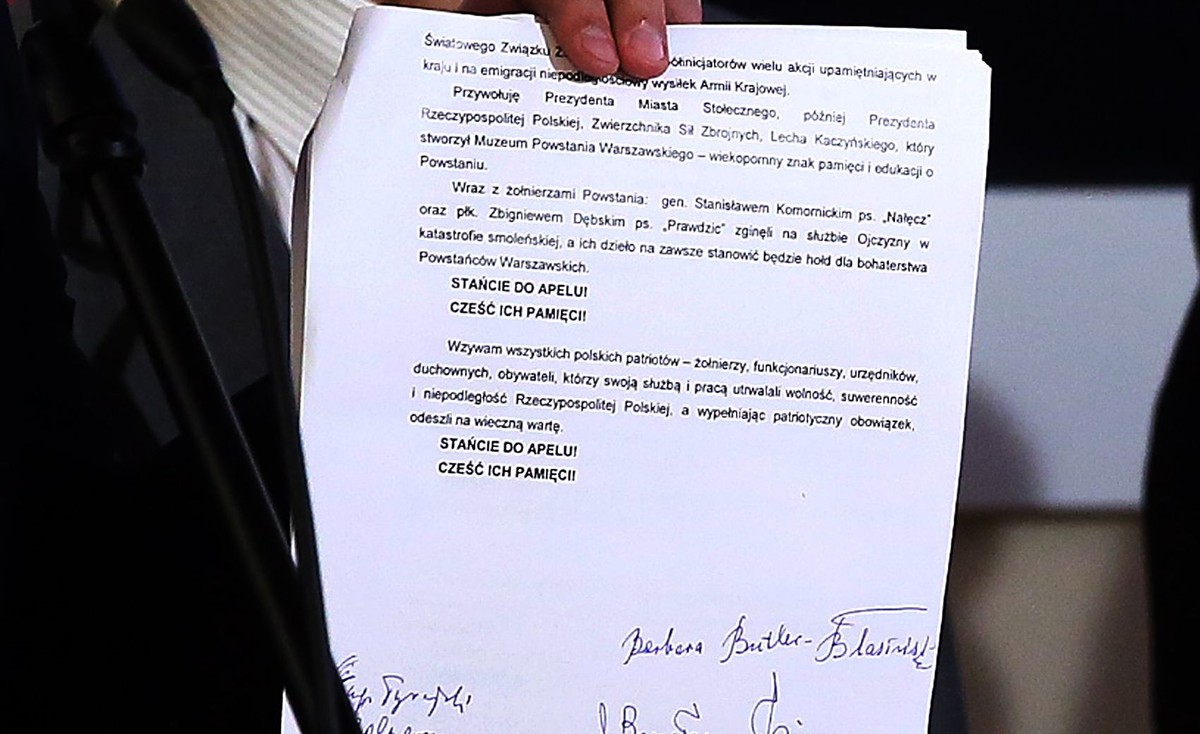 Światowego Związku półinicjatorów wielu akcji upamiętniających w
kraju i na emigracji niepodległościowy wysiłek Armii Krajowej.
Przywołuję Prezydenta Miasta Stołecznego, później Prezydenta
Rzeczypospolitej Polskiej, Zwierzchnika Sił Zbrojnych, Lecha Kaczyńskiego, który
stworzył Muzeum Powstania Warszawskiego – wiekopomny znak pamięci i edukacji o
Powstaniu.
Wraz z żołnierzami Powstania: gen. Stanisławem Komornickim ps. „Nałęcz”
oraz płk. Zbigniewem Dębskim ps. „Prawdzic” zginęli na służbie Ojczyzny w
katastrofie smoleńskiej, a ich dzieło na zawsze stanowić będzie hołd dla bohaterstwa
Powstańców Warszawskich.
STAŃCIE DO APELU!
CZEŚĆ ICH PAMIĘCI!
Wzywam wszystkich polskich patriotów – żołnierzy, funkcjonariuszy, urzędników,
duchownych, obywateli, którzy swoją służbą i pracą utrwalali wolność, suwerenność
i niepodległość Rzeczypospolitej Polskiej, a wypełniając patriotyczny obowiązek,
odeszli na wieczną wartę.
STAŃCIE DO APELU!
CZEŚĆ ICH PAMIĘCI!
Barbara Butler-